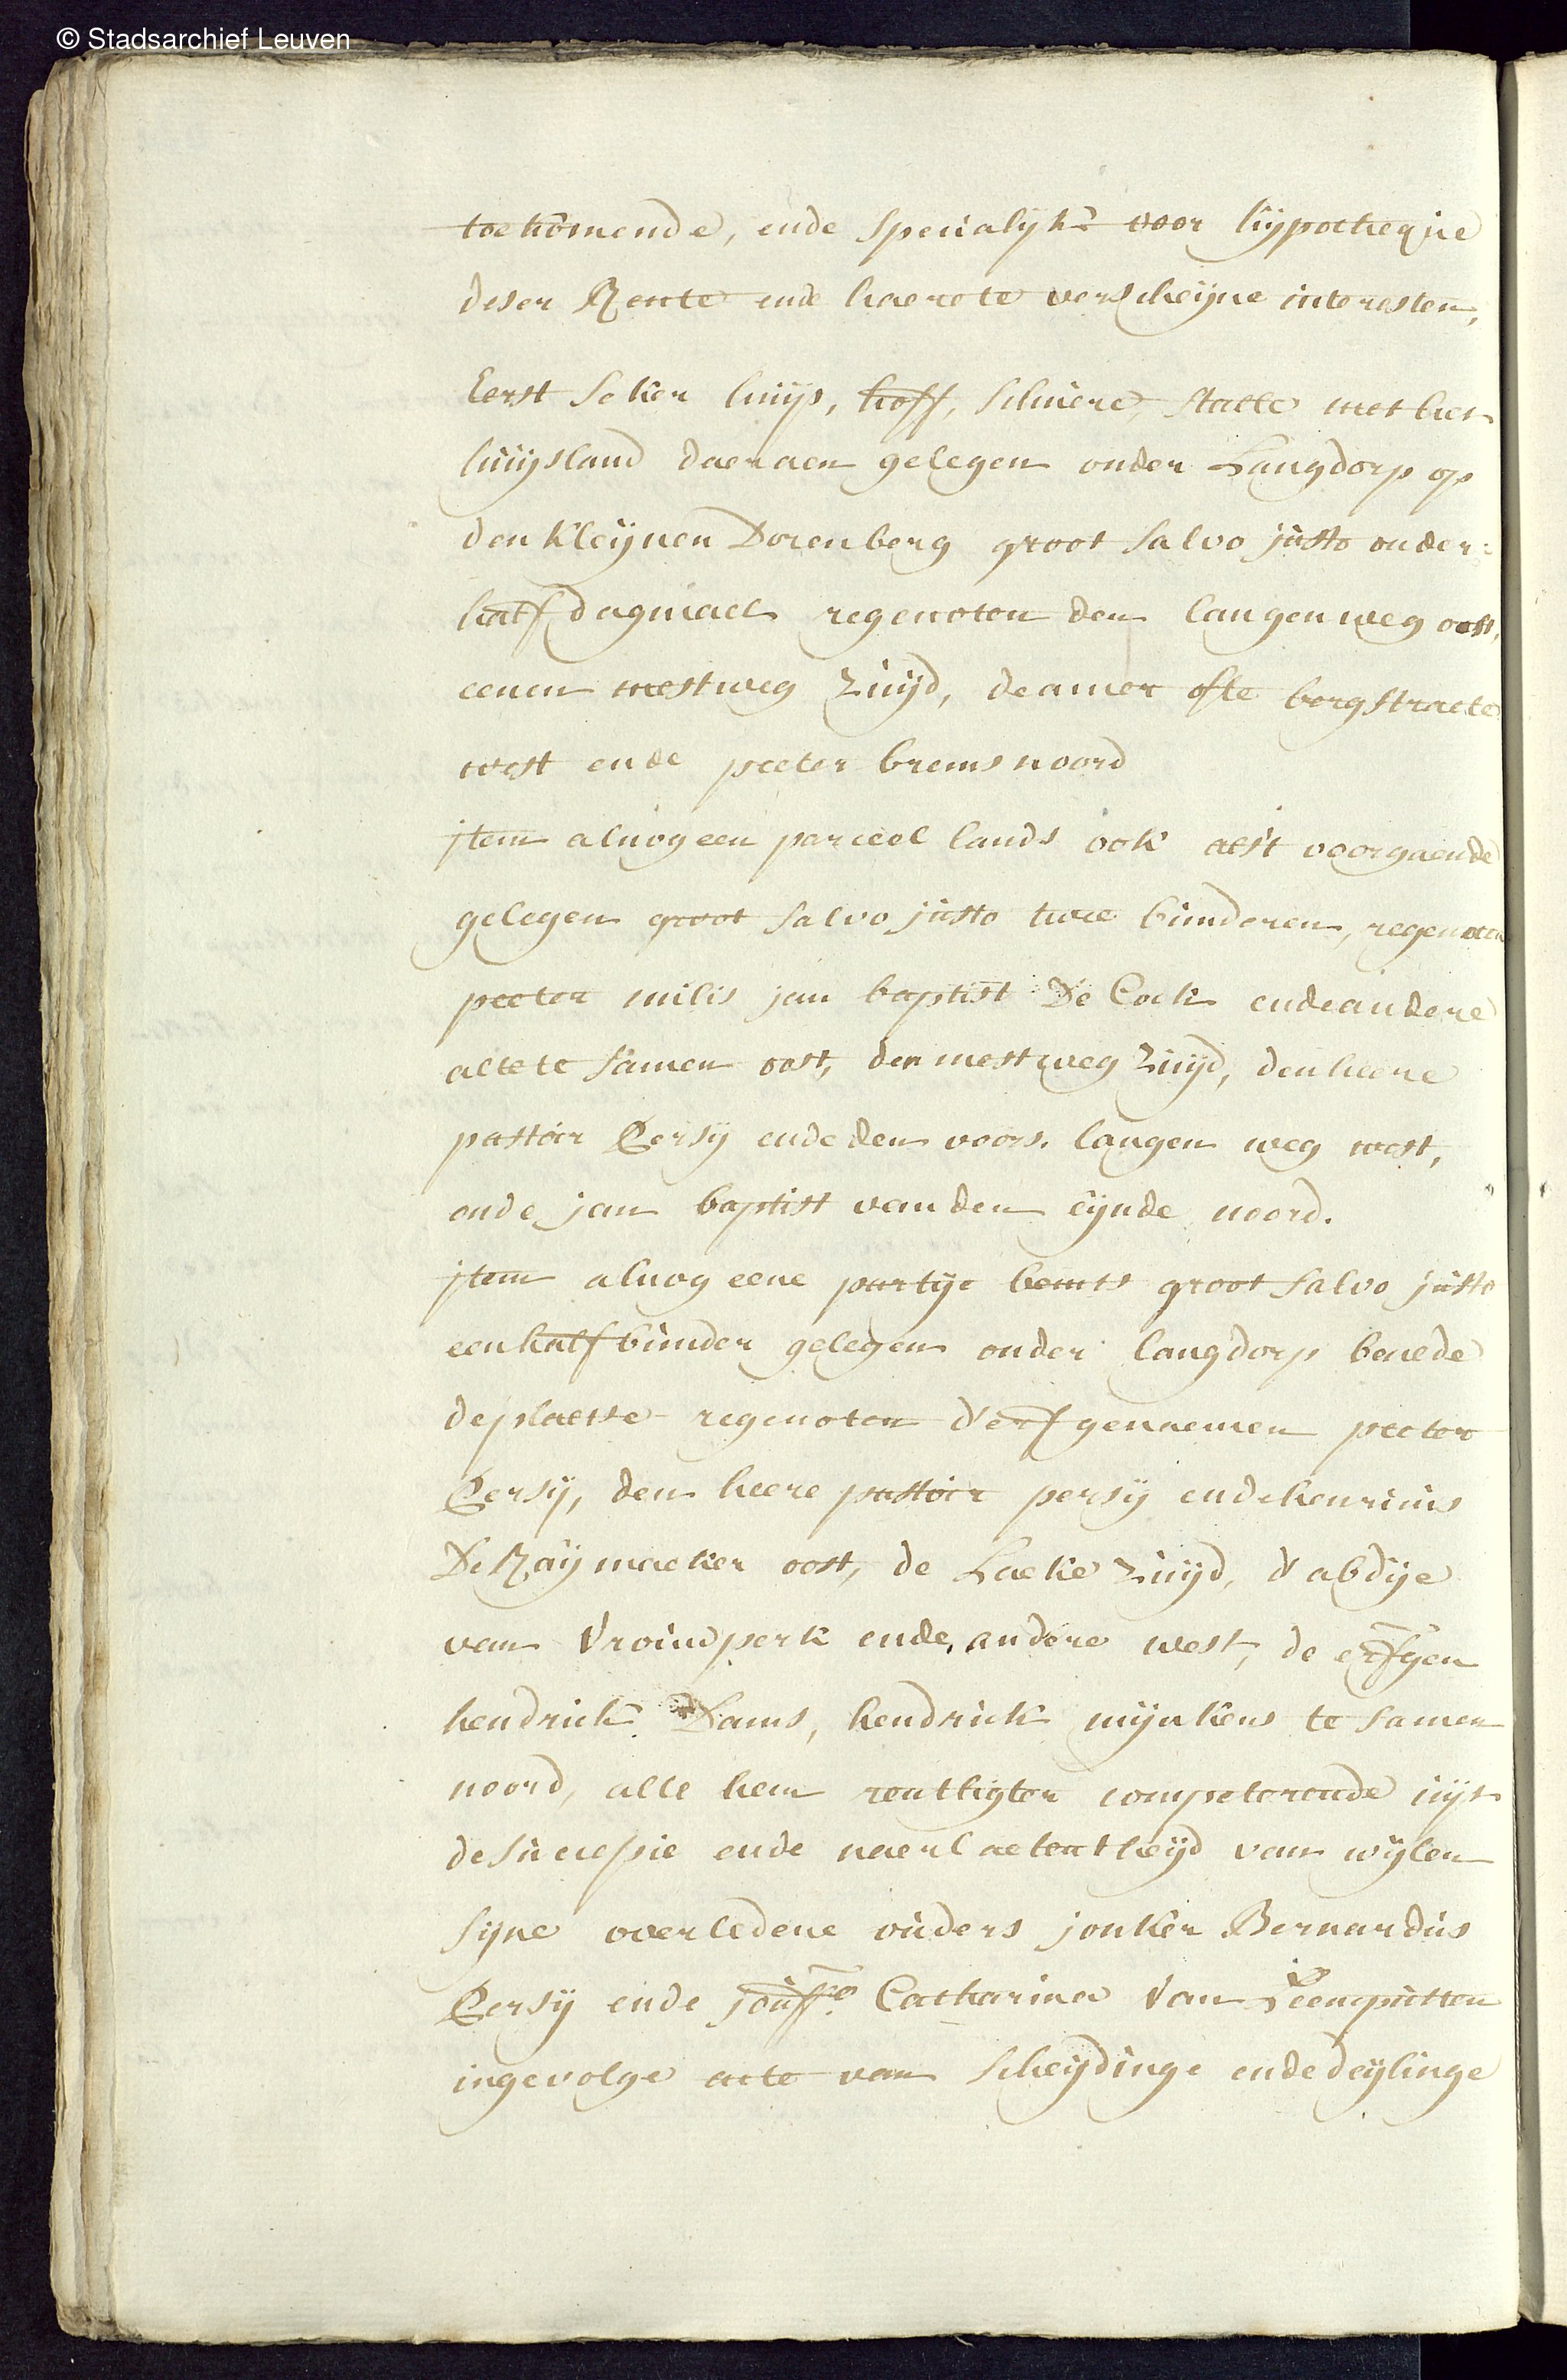 © Stadsarchief Leuven
toekomende, ende specialyk voor hypotheque
deser Rente ende haere te verscheyne interesten,
Eerst seker huys, hoff, schuere, stalle met het
huysland daeraen gelegen onder Langdorp op
den kleynen Dorenberg groot salvo justo onder:
half dagmael regenoten den langen weg oost,
eenen mestweg zuyd, de amer ofte bergstraete
west ende peeter brems noord
item alnog een parceel lands ook als't voorgaende
gelegen groot salvo justo twee bunderen, regenoten
peeter milis jan baptist De Cock ende andere
alle te samen oost, den mestweg zuyd, den heere
pastoir Persy ende den voors. langen weg west,
ende jan baptist van den eynde noord.
item alnog eene partye bemts groot salvo justo
een half bunder gelegen onder langdorp benede
de plaetse regenoten d'erfgenaemen peeter
Persy, den heere pastoir persy ende henricus
De Raymaeker oost, de Laeke zuyd, d'abdye
van Vrouwperk ende andere west, de erfgen
hendrick Dams, hendrick mynkens te samen
noord, alle hem rentligter competerende uyt
de successie ende naerlaetentheyd van wylen
syne overledene ouders jonker Bernardus
Persy ende jouffe. Catharina Van Leemputten
ingevolge acte van scheydinge ende deylinge